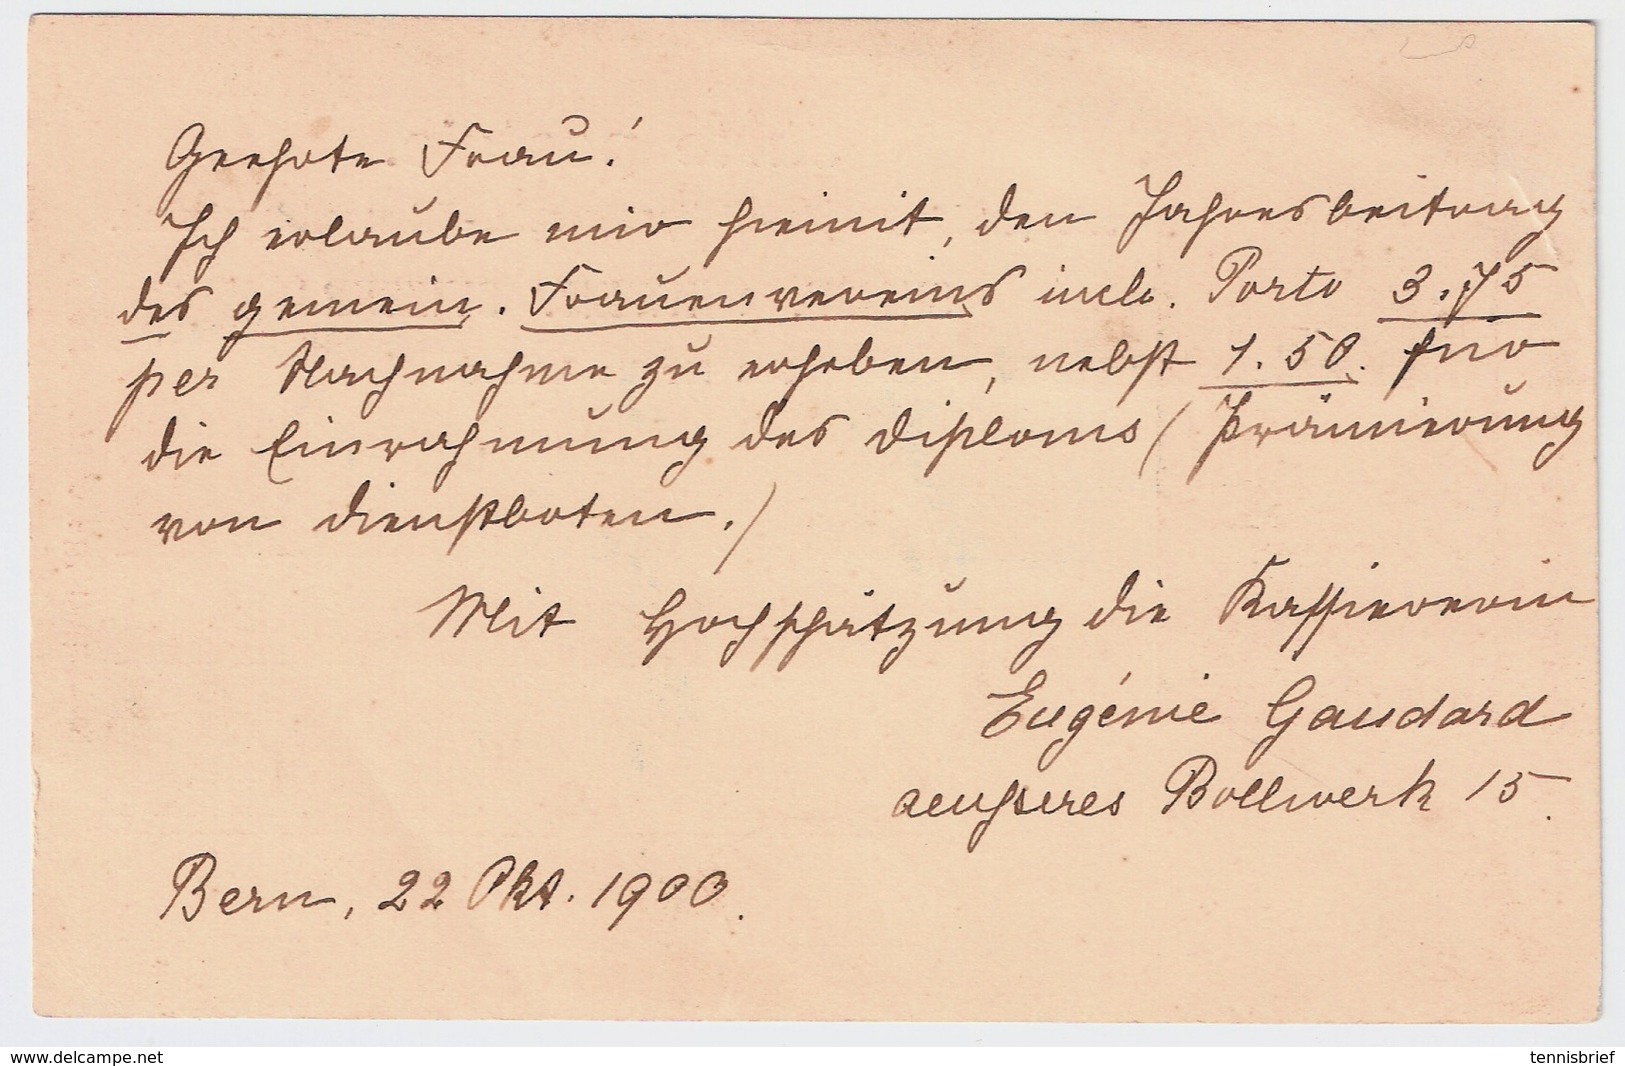 Geehrte Frau!
Ich erlaube mir hiemit, den Jahresbeitrag
des gemein. Frauenvereins incl. Porto 3.75
per Nachnahme zu erheben, nebst 1.50. für
die Einrahmung des Diploms (Prämierung
von Dienstboten.)
Mit Hochschätzung die Kassiererin
Eugénie Gaudard
aeusseres Bollwerk 15.
Bern, 22 Okt. 1900.
www.delcampe.net
tennisbrief